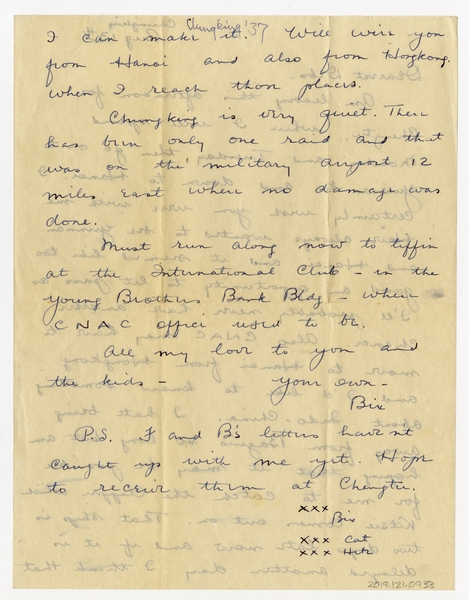 Chungking '37
I can make it. Will wire you
from Hanoi and also from Hongkong
when I reach those places.
Chungking is very quiet. There
has been only one raid and that
was on the military airport 12
miles East where no damage was
done.
Must run along now to tiffin
at the International Club – in the
Young Brothers Bank Bldg – where
CNAC office used to be.
All my love to you and
the kids –
your own –
Bix
P.S. F and B's letters havent
caught up with me yet. Hope
to receive them at Chengtu.
xxx
Bix
xxx Cat
xxx
2019.121.0933